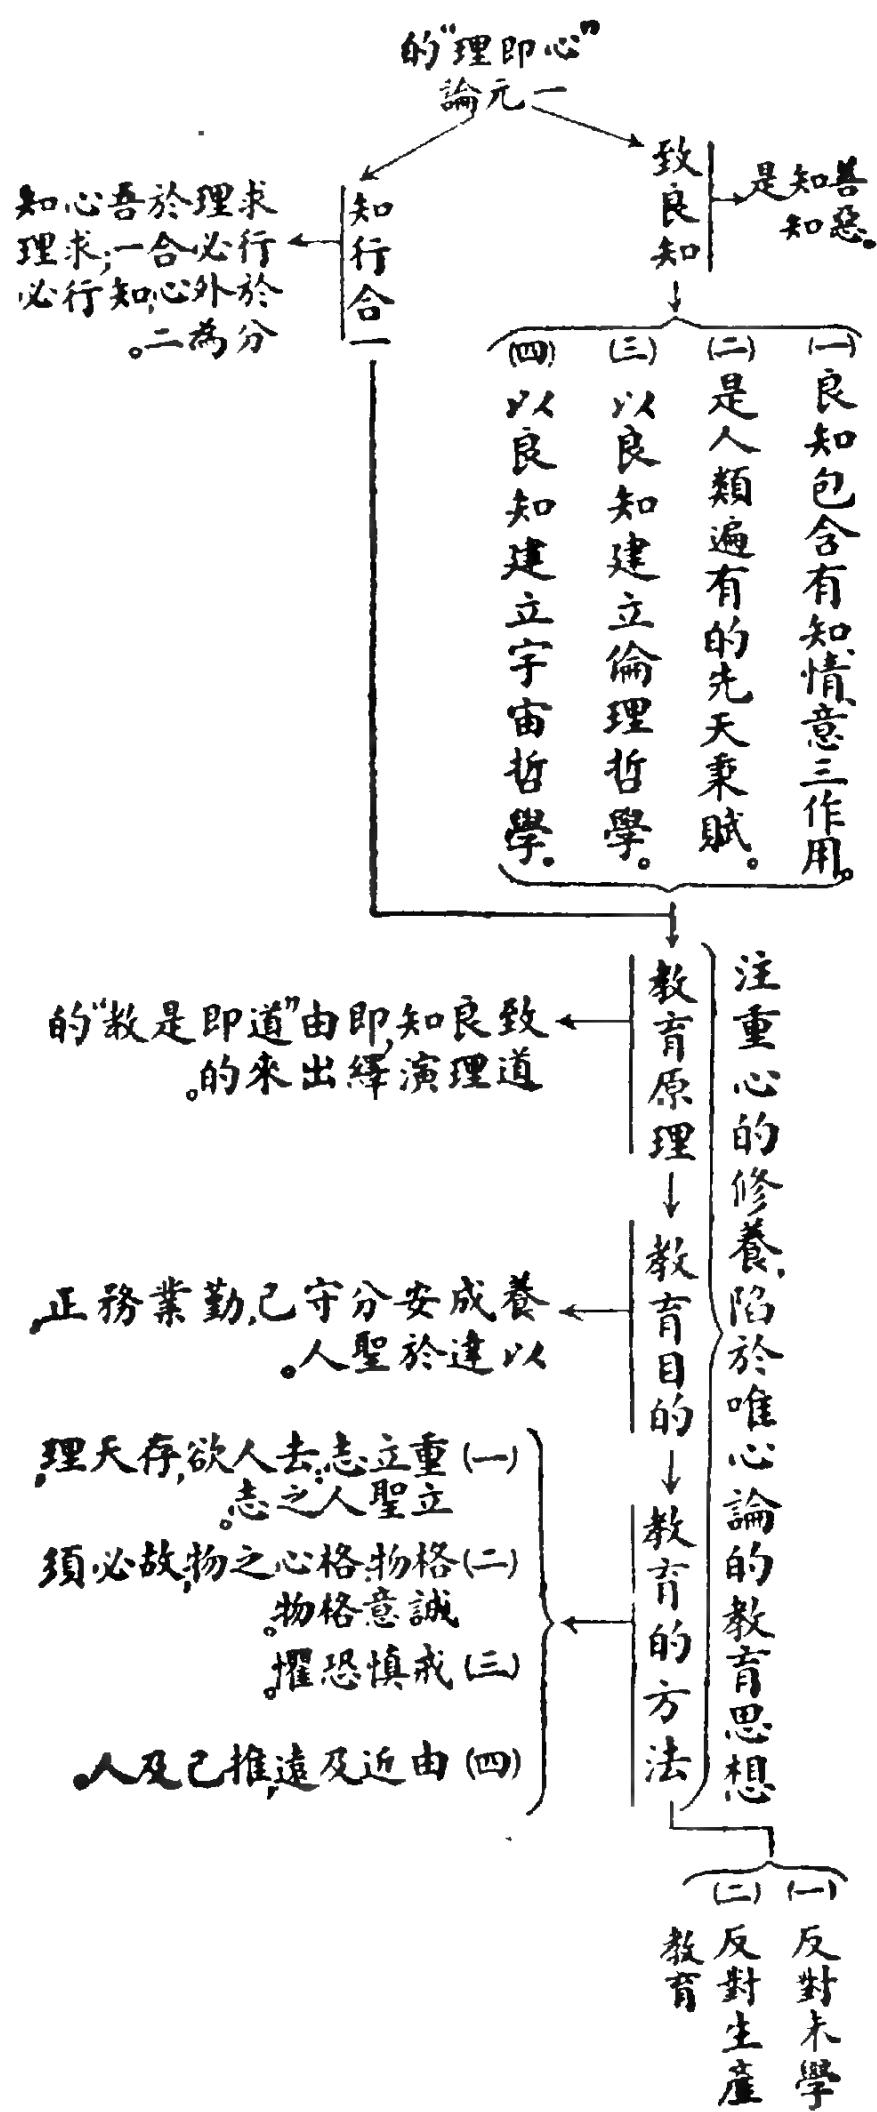 "心即理"的
一元論
致良知
是知善
知惡。
知行合一
求理於吾心知
行必合一;求理
於外心,知行必
分為二。
(一)良知包含有知、情、意三作用。
(二)是人類遍有的先天秉賦。
(三)以良知建立倫理哲學。
(四)以良知建立宇宙哲學。
注重心的修養,陷於唯心論的教育思想
教育原理
致良知,即由"道即是教"的
道理演繹出來的。
教育目的
養成安分守己,勤業務正,
以達於聖人。
教育的方法
(一)重立志:去人欲,存天理,
立聖人之志。
(二)格物:格心之物,故必須
誠意格物。
(三)戒慎恐懼。
(四)由近及遠,推己及人。
(一)反對末學
(二)反對生產
教育